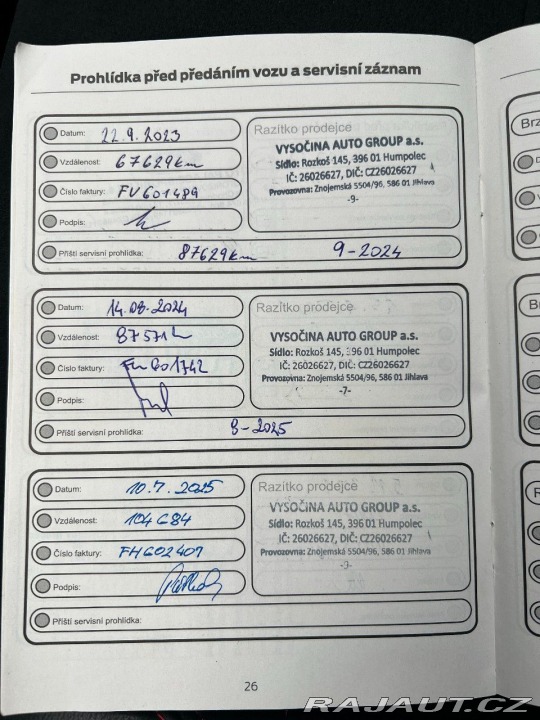 Prohlídka před předáním vozu a servisní záznam
Datum: 22.9.2023
Vzdálenost: 67629km
Číslo faktury: FV601489
Podpis:
Razítko prodejce
VYSOČINA AUTO GROUP a.s.
Sídlo: Rozkoš 145, 396 01 Humpolec
IČ: 26026627, DIČ: CZ26026627
Provozovna: Znojemská 5504/96, 586 01 Jihlava
-9-
Příští servisní prohlídka: 87629km 9-2024
Datum: 14.08.2024
Vzdálenost: 87571
Číslo faktury: 601742
Podpis:
Razítko prodejce
VYSOČINA AUTO GROUP a.s.
Sídlo: Rozkoš 145, 396 01 Humpolec
IČ: 26026627, DIČ: CZ26026627
Provozovna: Znojemská 5504/96, 586 01 Jihlava
-7-
Příští servisní prohlídka: 8-2025
Datum: 10.7.2025
Vzdálenost: 104684
Číslo faktury: FH602401
Podpis:
Razítko prodejce
VYSOČINA AUTO GROUP a.s.
Sídlo: Rozkoš 145, 396 01 Humpolec
IČ: 26026627, DIČ: CZ26026627
Provozovna: Znojemská 5504/96, 586 01 Jihlava
Příští servisní prohlídka:
26
Brz
RAJAUT.CZ